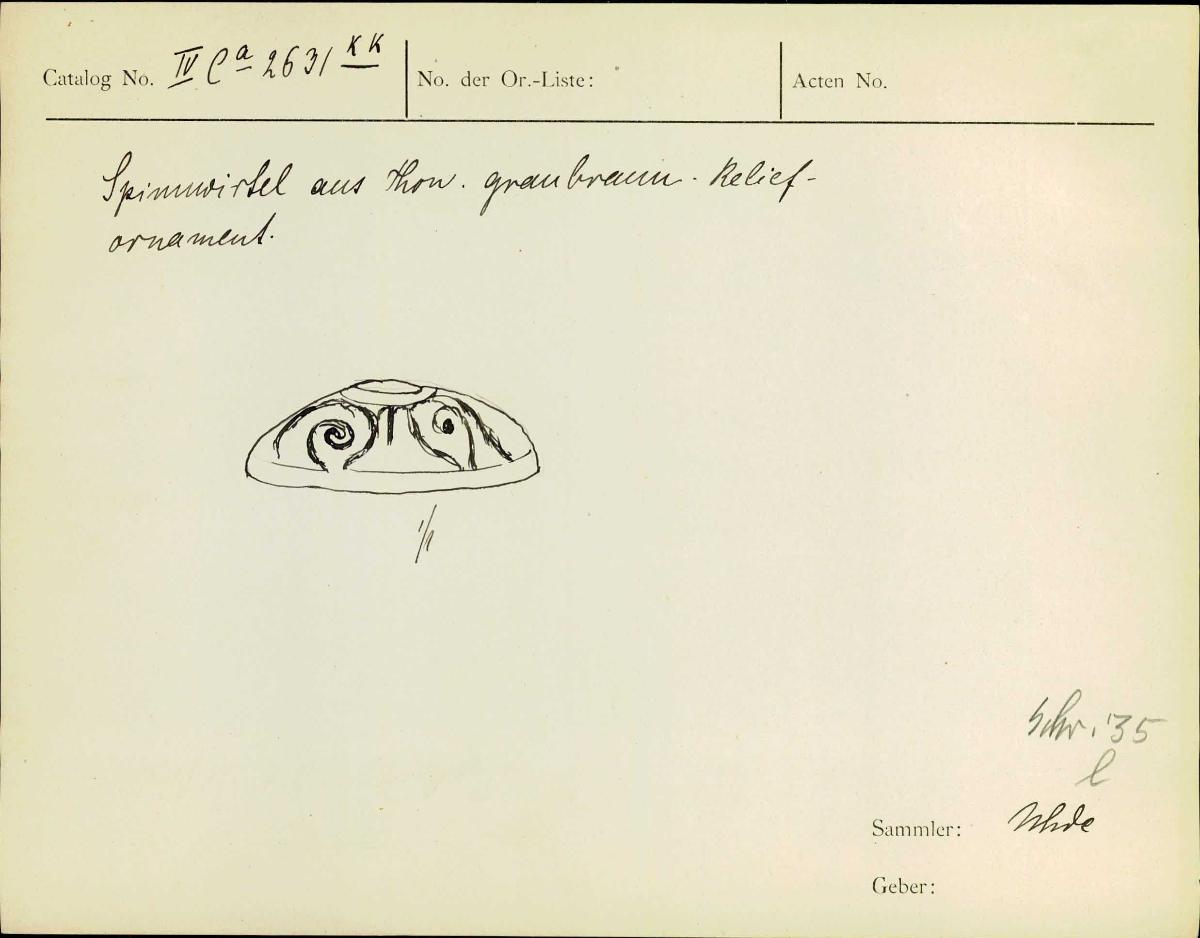 Catalog No. IV Ca 2631 KK
No. der Or.-Liste:
Acten No.
Spinnwirtel aus Thon. graubraun. Relief-
ornament.
1/1
Schr. '35
l
Sammler: Uhde
Geber: